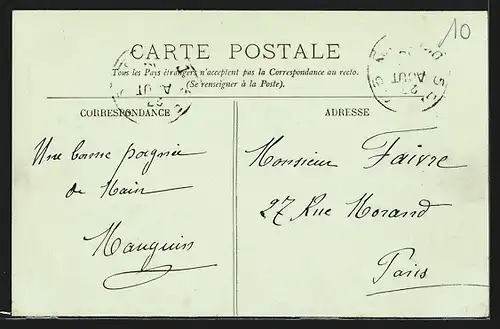 10
CARTE POSTALE
Tous les Pays étrangers n'acceptent pas la Correspondance au recto.
(Se renseigner à la Poste).
CORRESPONDANCE
Une bonne poignée
de Main
Mauguin
ADRESSE
Monsieur Faivre
27 Rue Morand
Paris
AOUT
AOUT